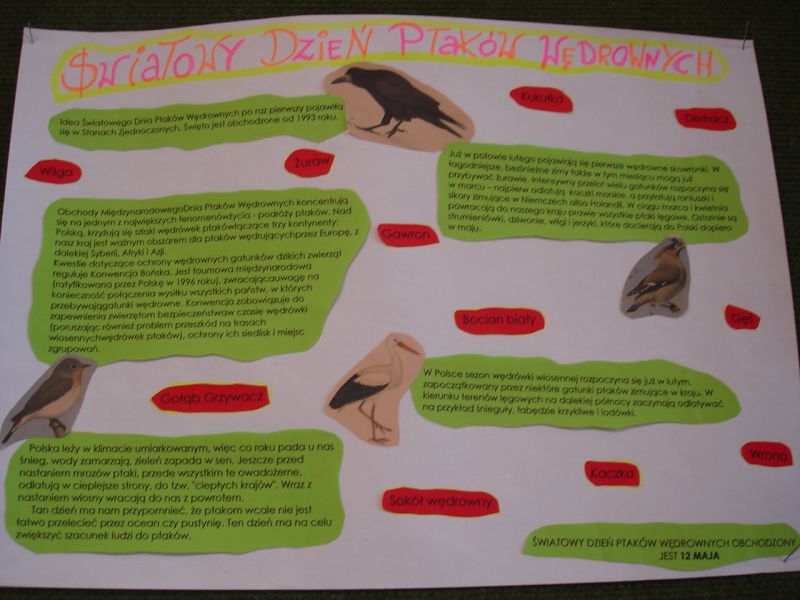 Światowy Dzień Ptaków Wędrownych
Idea Światowego Dnia Ptaków Wędrownych po raz pierwszy pojawiła
się w Stanach Zjednoczonych. Święto jest obchodzone od 1993 roku.
Kukułka
Derkacz
Wilga
Żuraw
Już w połowie lutego pojawiają się pierwsze wędrowne skowronki. W
łagodniejsze, bezśnieżne zimy także w tym miesiącu mogą już
przybywać żurawie. Intensywny przelot wielu gatunków rozpoczyna się
w marcu – najpierw odlatują kaczki morskie, a przylatują raniuszki i
sikory zimujące w Niemczech albo Holandii. W ciągu marca i kwietnia
powracają do naszego kraju prawie wszystkie ptaki lęgowe. Ostatnie są
strumieniówki, dziwonie, wilgi i jerzyki, które docierają do Polski dopiero
w maju.
Obchody MiędzynarodowegoDnia Ptaków Wędrownych koncentrują
się na jednym z największych fenomenówżycia - podróży ptaków. Nad
Polską, krzyżują się szlaki wędrówek ptakówłączące trzy kontynenty;
nasz kraj jest ważnym obszarem dla ptaków wędrującychprzez Europę, z
dalekiej Syberii, Afryki i Azji.
Kwestie dotyczące ochrony wędrownych gatunków dzikich zwierząt
reguluje Konwencja Bońska. Jest toumowa międzynarodowa
(ratyfikowana przez Polskę w 1996 roku), zwracającauwagę na
konieczność połączenia wysiłku wszystkich państw, w których
przebywajągatunki wędrowne. Konwencja zobowiązuje do
zapewnienia zwierzętom bezpieczeństwaw czasie wędrówki
(poruszając również problem przeszkód na trasach
wiosennychwędrówek ptaków), ochrony ich siedlisk i miejsc
zgrupowań.
Gawron
Bocian biały
Gęś
W Polsce sezon wędrówki wiosennej rozpoczyna się już w lutym,
zapoczątkowany przez niektóre gatunki ptaków zimujące w kraju. W
kierunku terenów lęgowych na dalekiej północy zaczynają odlatywać
na przykład śnieguły, łabędzie krzykliwe i lodówki.
Gołąb Grzywacz
Polska leży w klimacie umiarkowanym, więc co roku pada u nas
śnieg, wody zamarzają, zieleń zapada w sen. Jeszcze przed
nastaniem mrozów ptaki, przede wszystkim te owadożerne,
odlatują w cieplejsze strony, do tzw. "ciepłych krajów". Wraz z
nastaniem wiosny wracają do nas z powrotem.
Tan dzień ma nam przypomnieć, że ptakom wcale nie jest
łatwo przelecieć przez ocean czy pustynię. Ten dzień ma na celu
zwiększyć szacunek ludzi do ptaków.
Wrona
Kaczka
Sokół wędrowny
ŚWIATOWY DZIEŃ PTAKÓW WĘDROWNYCH OBCHODZONY
JEST 12 MAJA